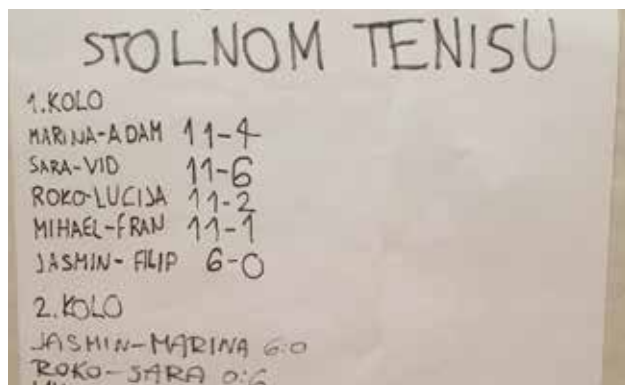 STOLNOM TENISU
1. KOLO
MARINA-ADAM 11-4
SARA-VID 11-6
ROKO-LUCIJA 11-2
MIHAEL-FRAN 11-1
JASMIN-FILIP 6-0
2. KOLO
JASMIN-MARINA 6:0
ROKO-SARA 0:6